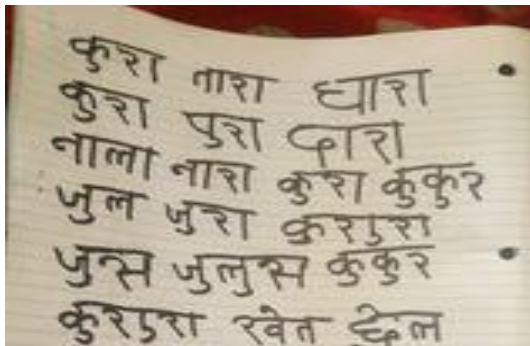 कुरा तारा धारा
कुरा पुरा दारा
नाला नारा कुरा कुकुर
जुल जुरा कुरुरा
जुत्स जुलुस कुकुर
कुरुरा खेत छेल